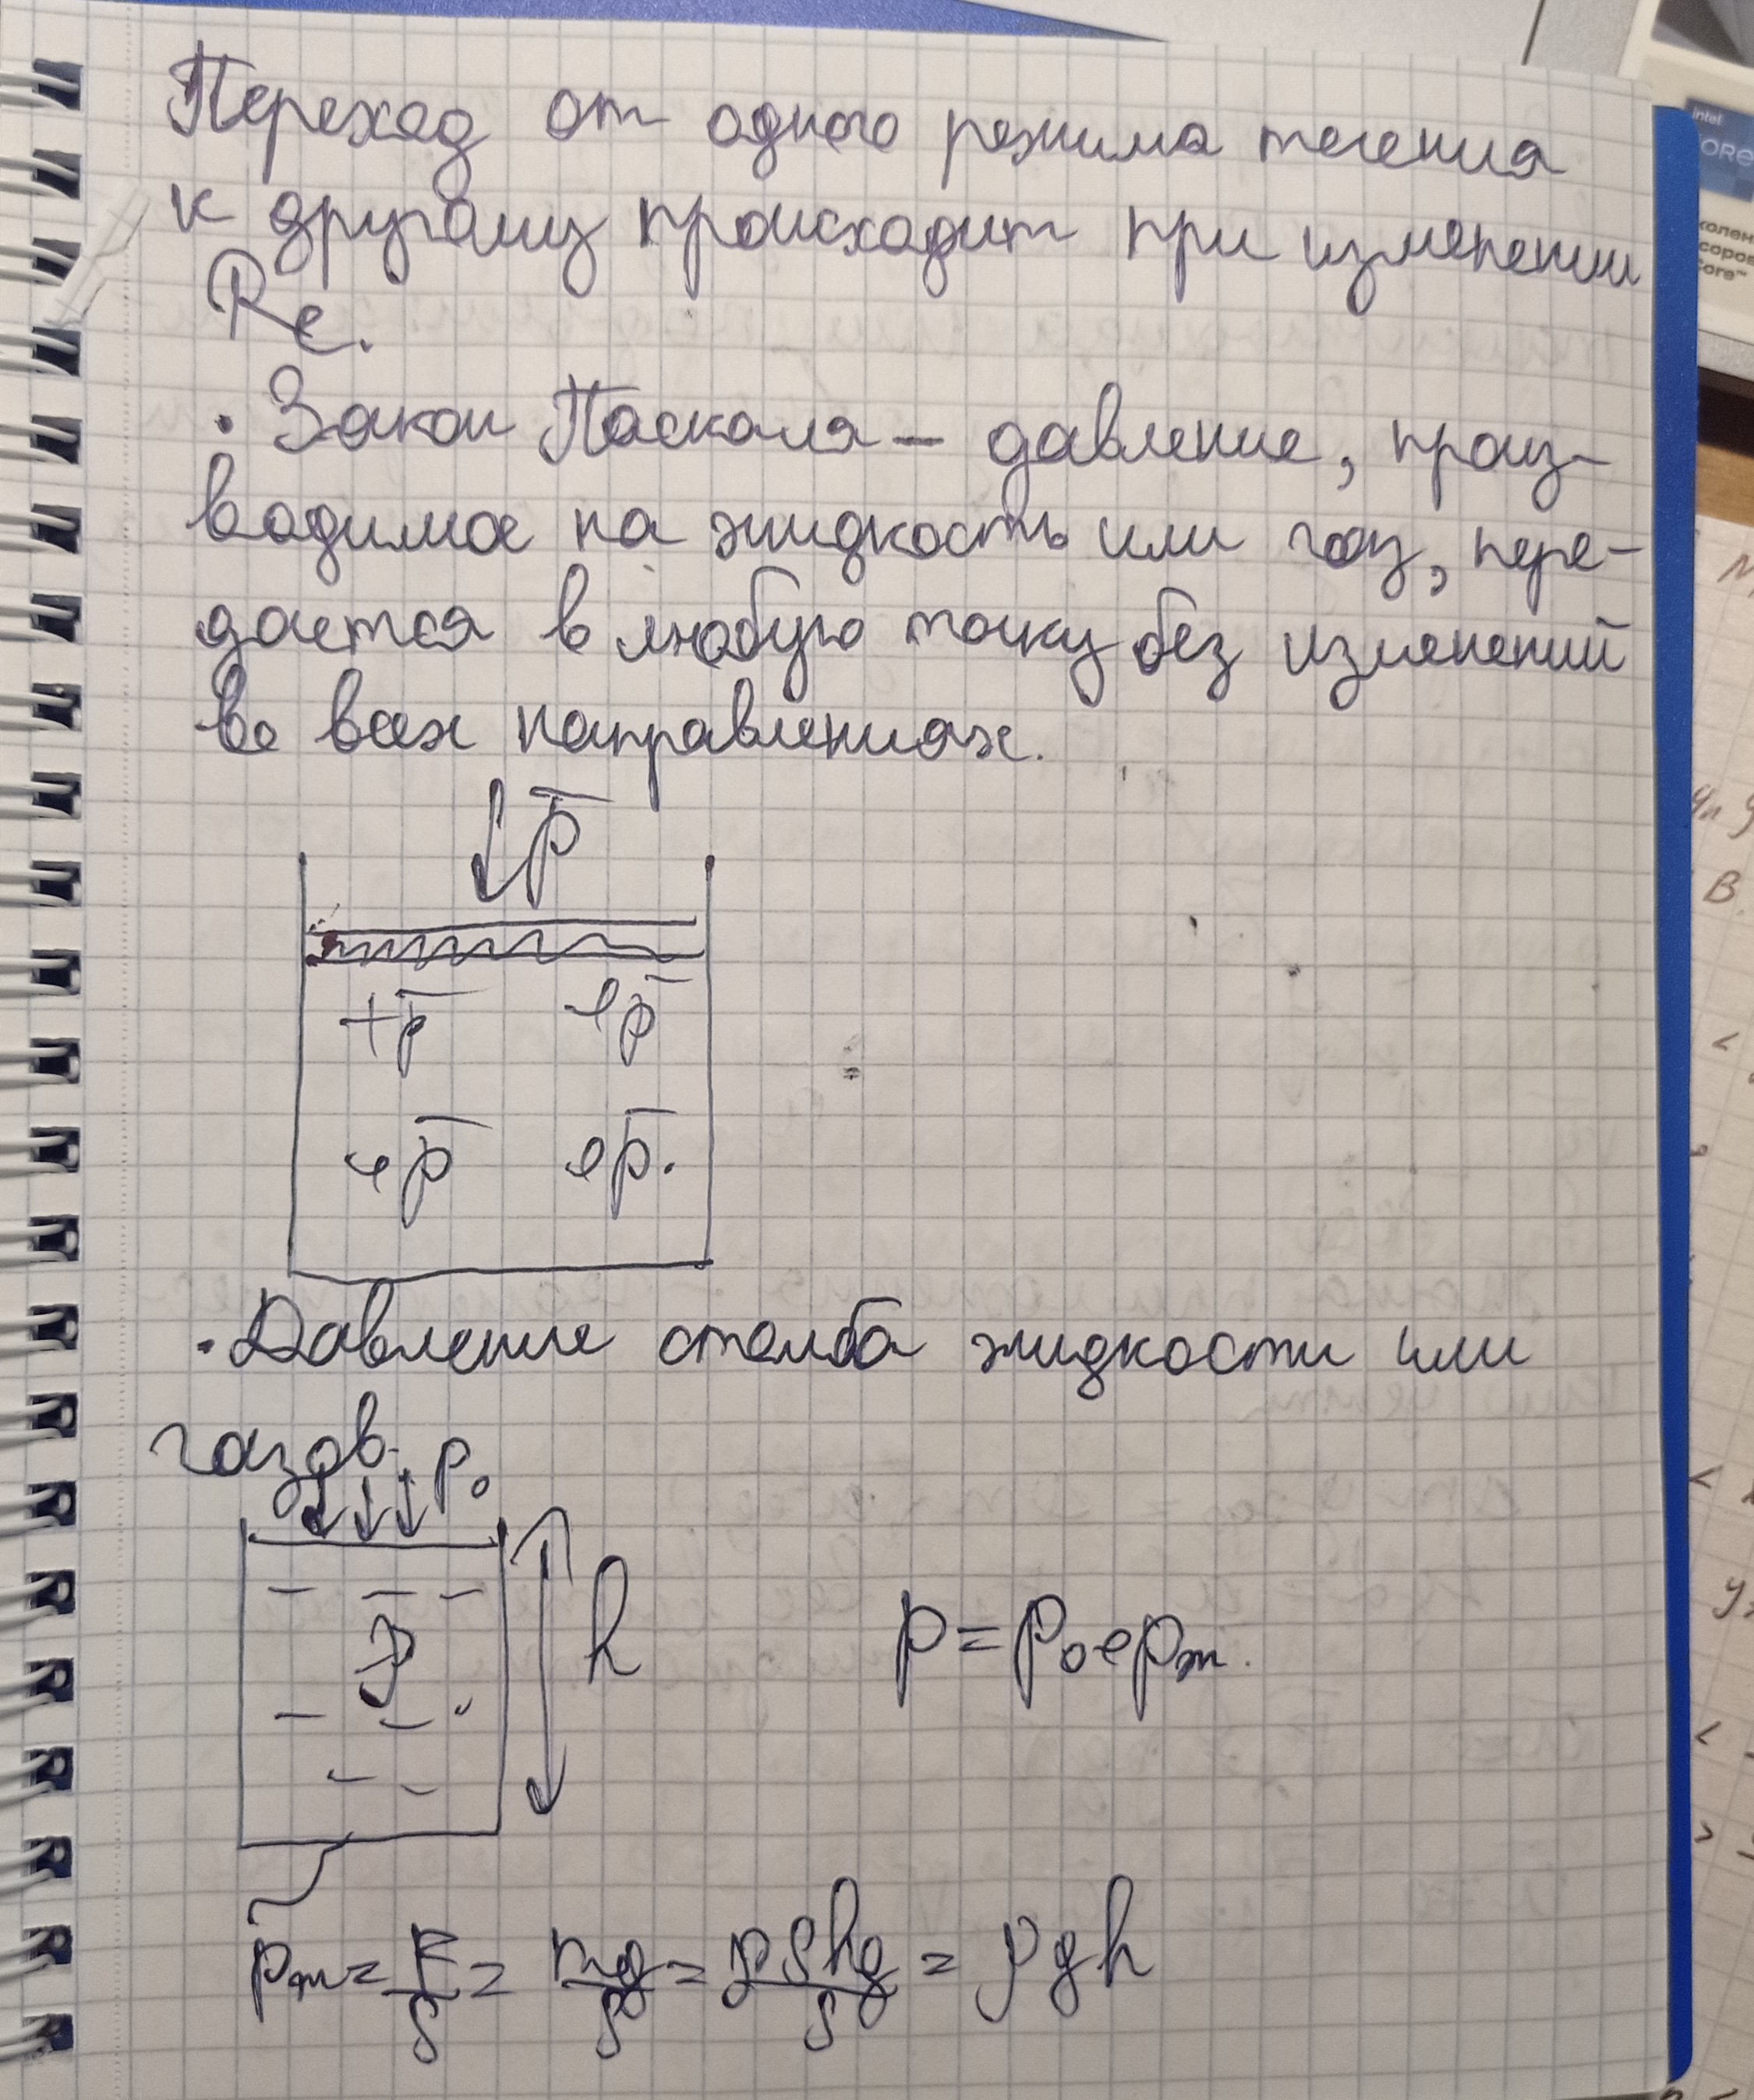 Переход от одного режима течения
к другому происходит при изменении
Re.
· Закон Паскаля – давление, произ-
водимое на жидкость или газ, пере-
дается в любую точку без изменений
во всех направлениях.
↓p̅
+p̅ +p̅
+p̅ +p̅.
· Давление столба жидкости или
газов. p₀
ρ h p = p₀ + pж.
pж = F/S = mg/S = ρShg/S = ρgh
intel
CORE